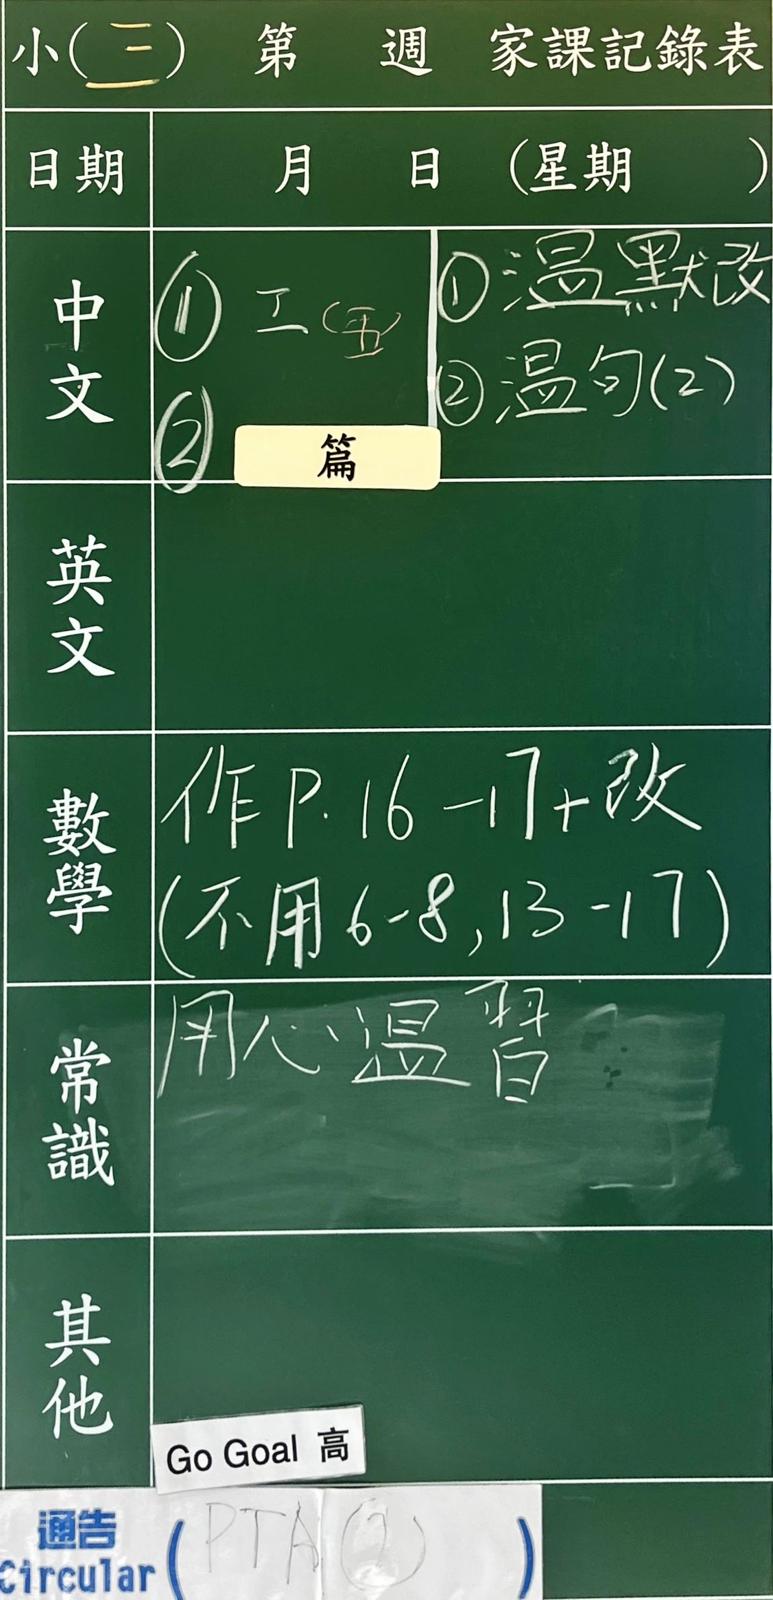 小(三) 第 週 家課記錄表
日期 月 日 (星期 )
中文
① 工(五)
② 篇
① 温默改
② 温句(2)
英文
數學
作 P. 16 -17+改
(不用 6-8, 13 -17)
常識
用心温習
其他
Go Goal 高
通告
Circular ( PTA )